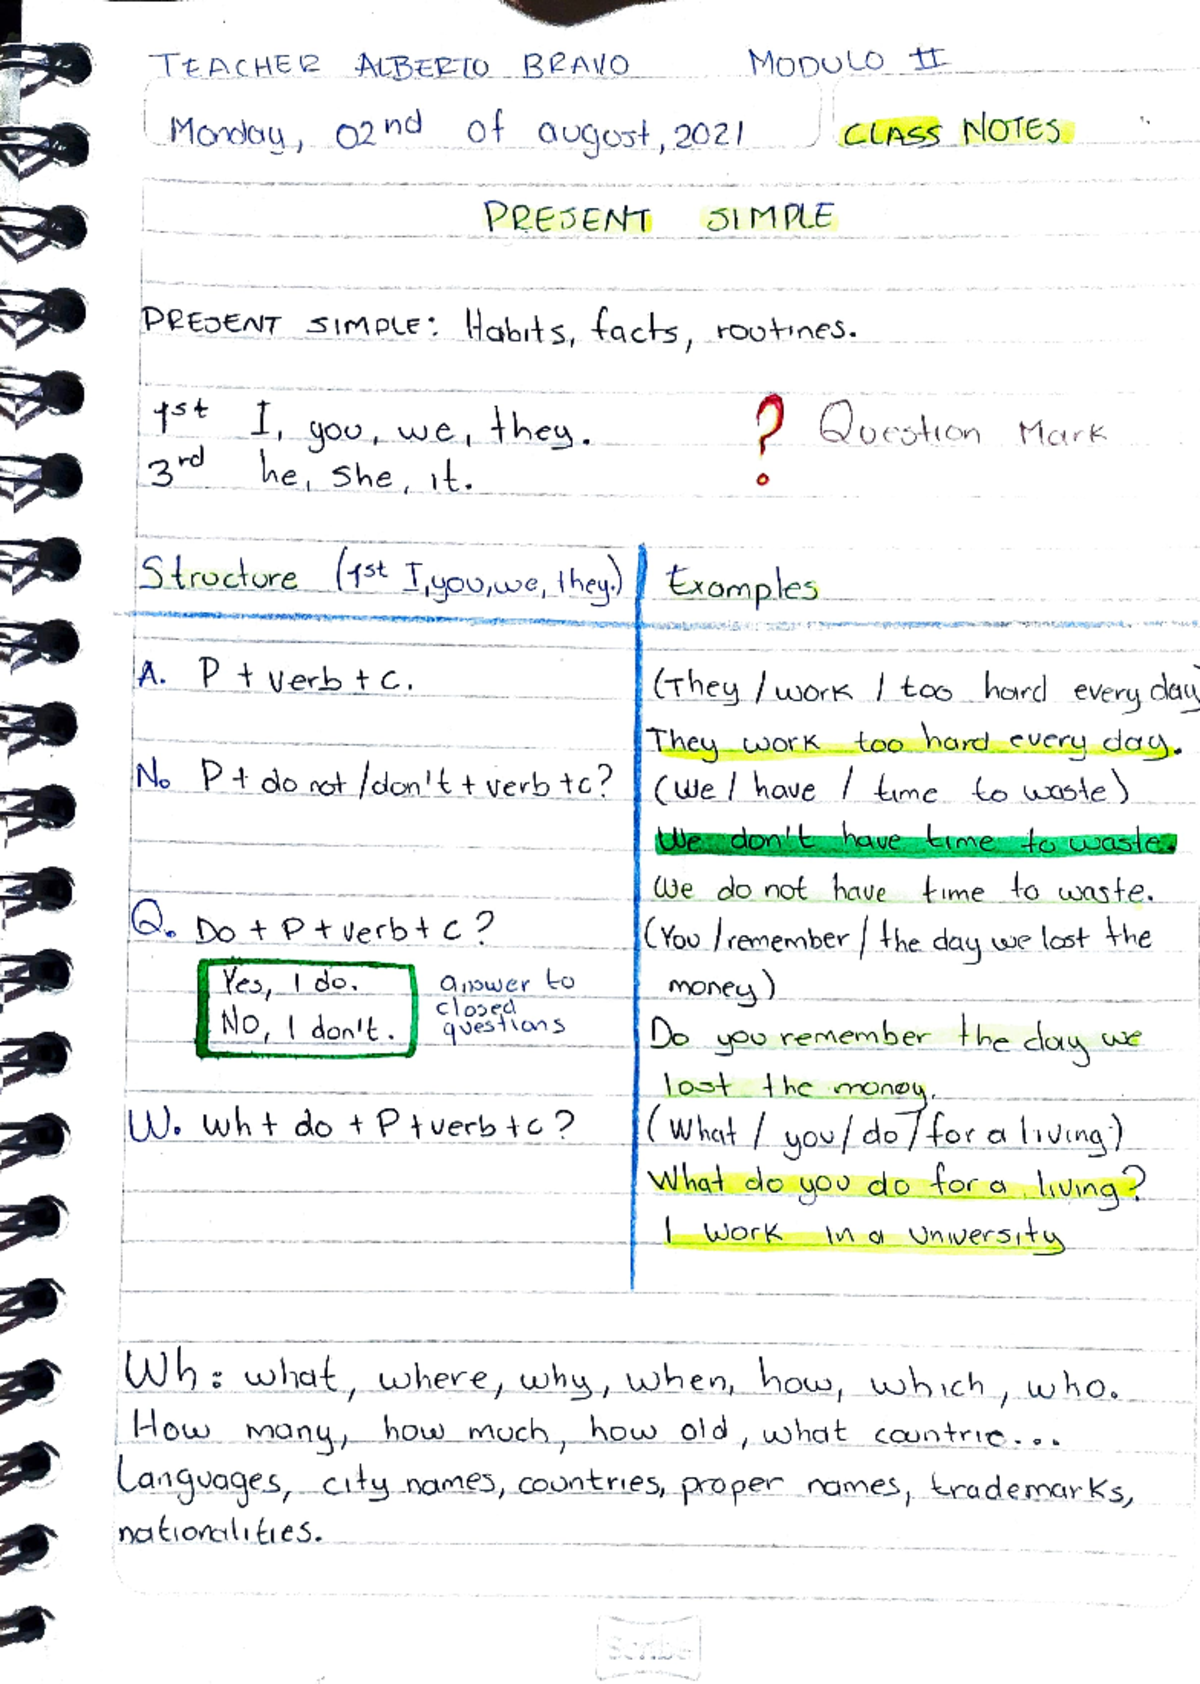 TEACHER ALBERTO BRAVO MODULO II
Monday, 02nd of august, 2021 CLASS NOTES
PRESENT SIMPLE
PRESENT SIMPLE: Habits, facts, routines.
1st I, you, we, they. ? Question Mark
3rd he, she, it.
Structure (1st I, you, we, they.) Examples
A. P + verb + c. (They / work / too hard every day
They work too hard every day.
No P + do not / don't + verb + c? (We / have / time to waste)
We don't have time to waste.
We do not have time to waste.
Q. Do + P + verb + c? (You / remember / the day we lost the
money)
Yes, I do. answer to
No, I don't. closed
questions
Do you remember the day we
lost the money.
W. Wh + do + P + verb + c? (What / you / do / for a living?)
What do you do for a living?
I work in a university
Wh: what, where, why, when, how, which, who.
How many, how much, how old, what countrie...
Languages, city names, countries, proper names, trademarks,
nationalities.
Scribe